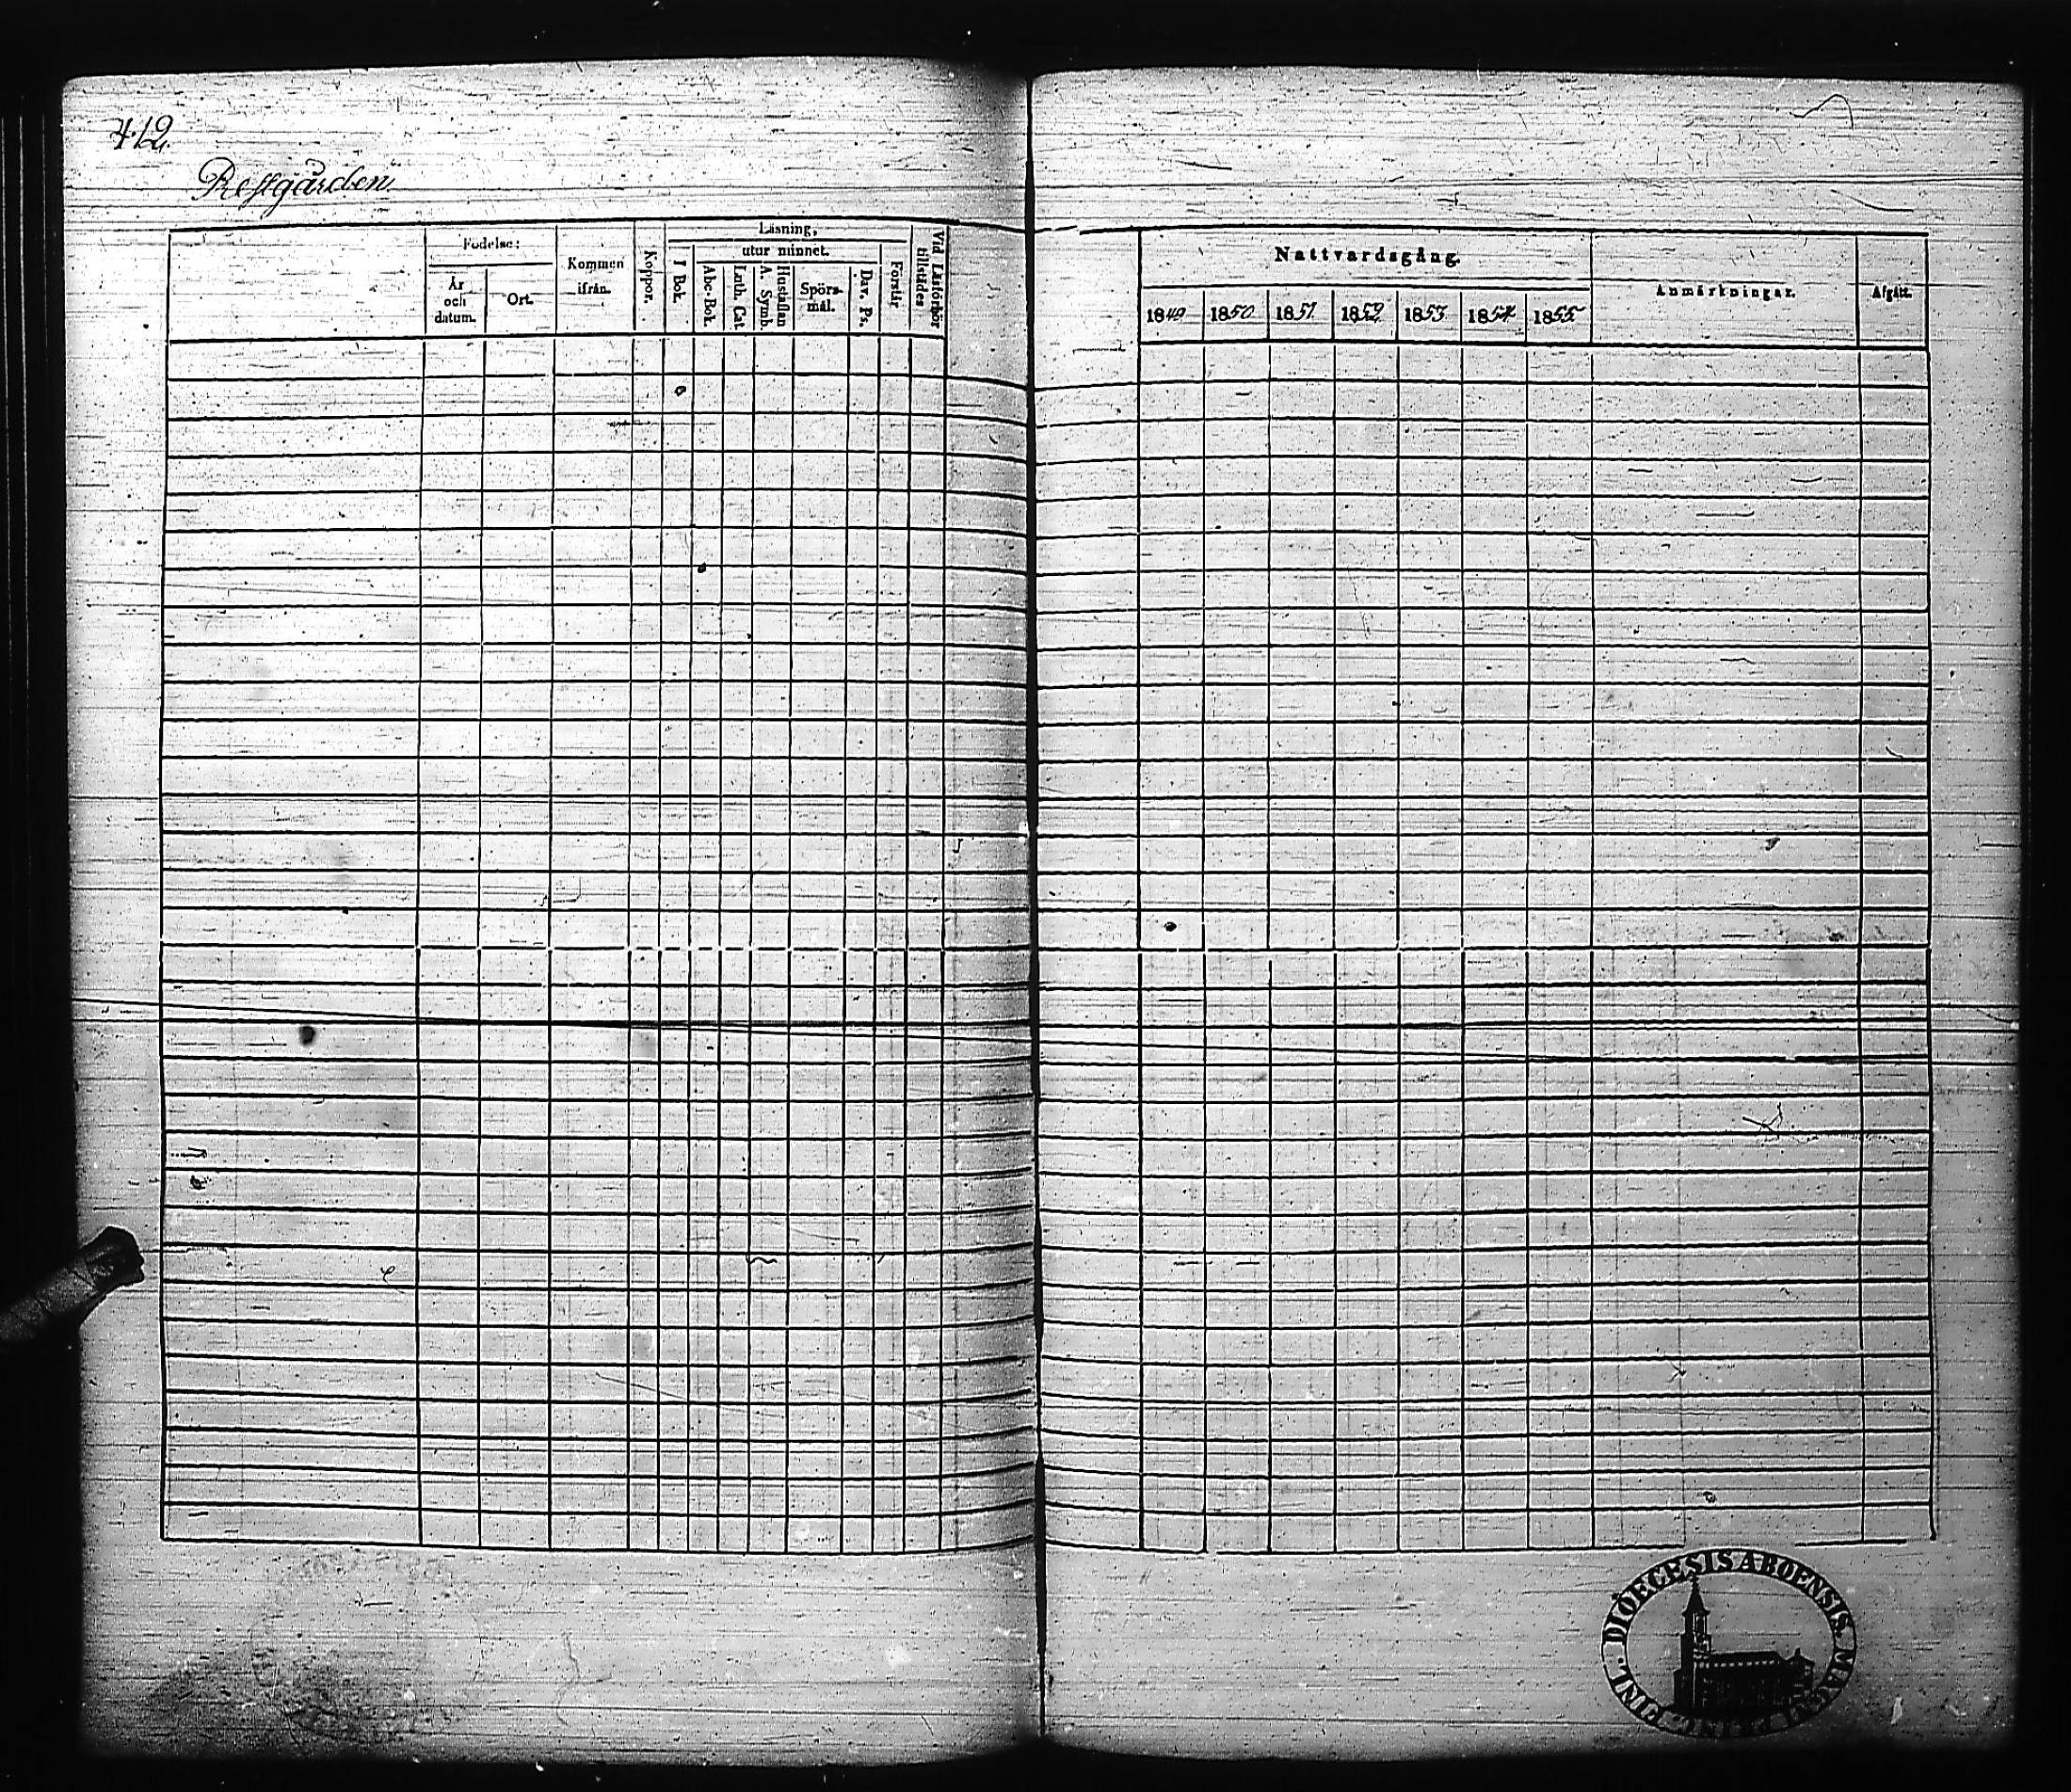 412.
Prestgården
Födelse:
År och datum.
Ort.
Kommen ifrån.
Koppor.
Läsning,
I Bok.
utur minnet.
Abc-Bok.
Luth. Cat.
Hustaflan A. Symb.
Spörsmål.
Dav. Ps.
Förstår
Vid Läsförhör tillstädes
Nattvardsgång.
1849
1850
1851
1852
1853
1854
1855
Anmärkningar.
Afgått.
DIOECESIS ABOENSIS. MAGNI FINL.